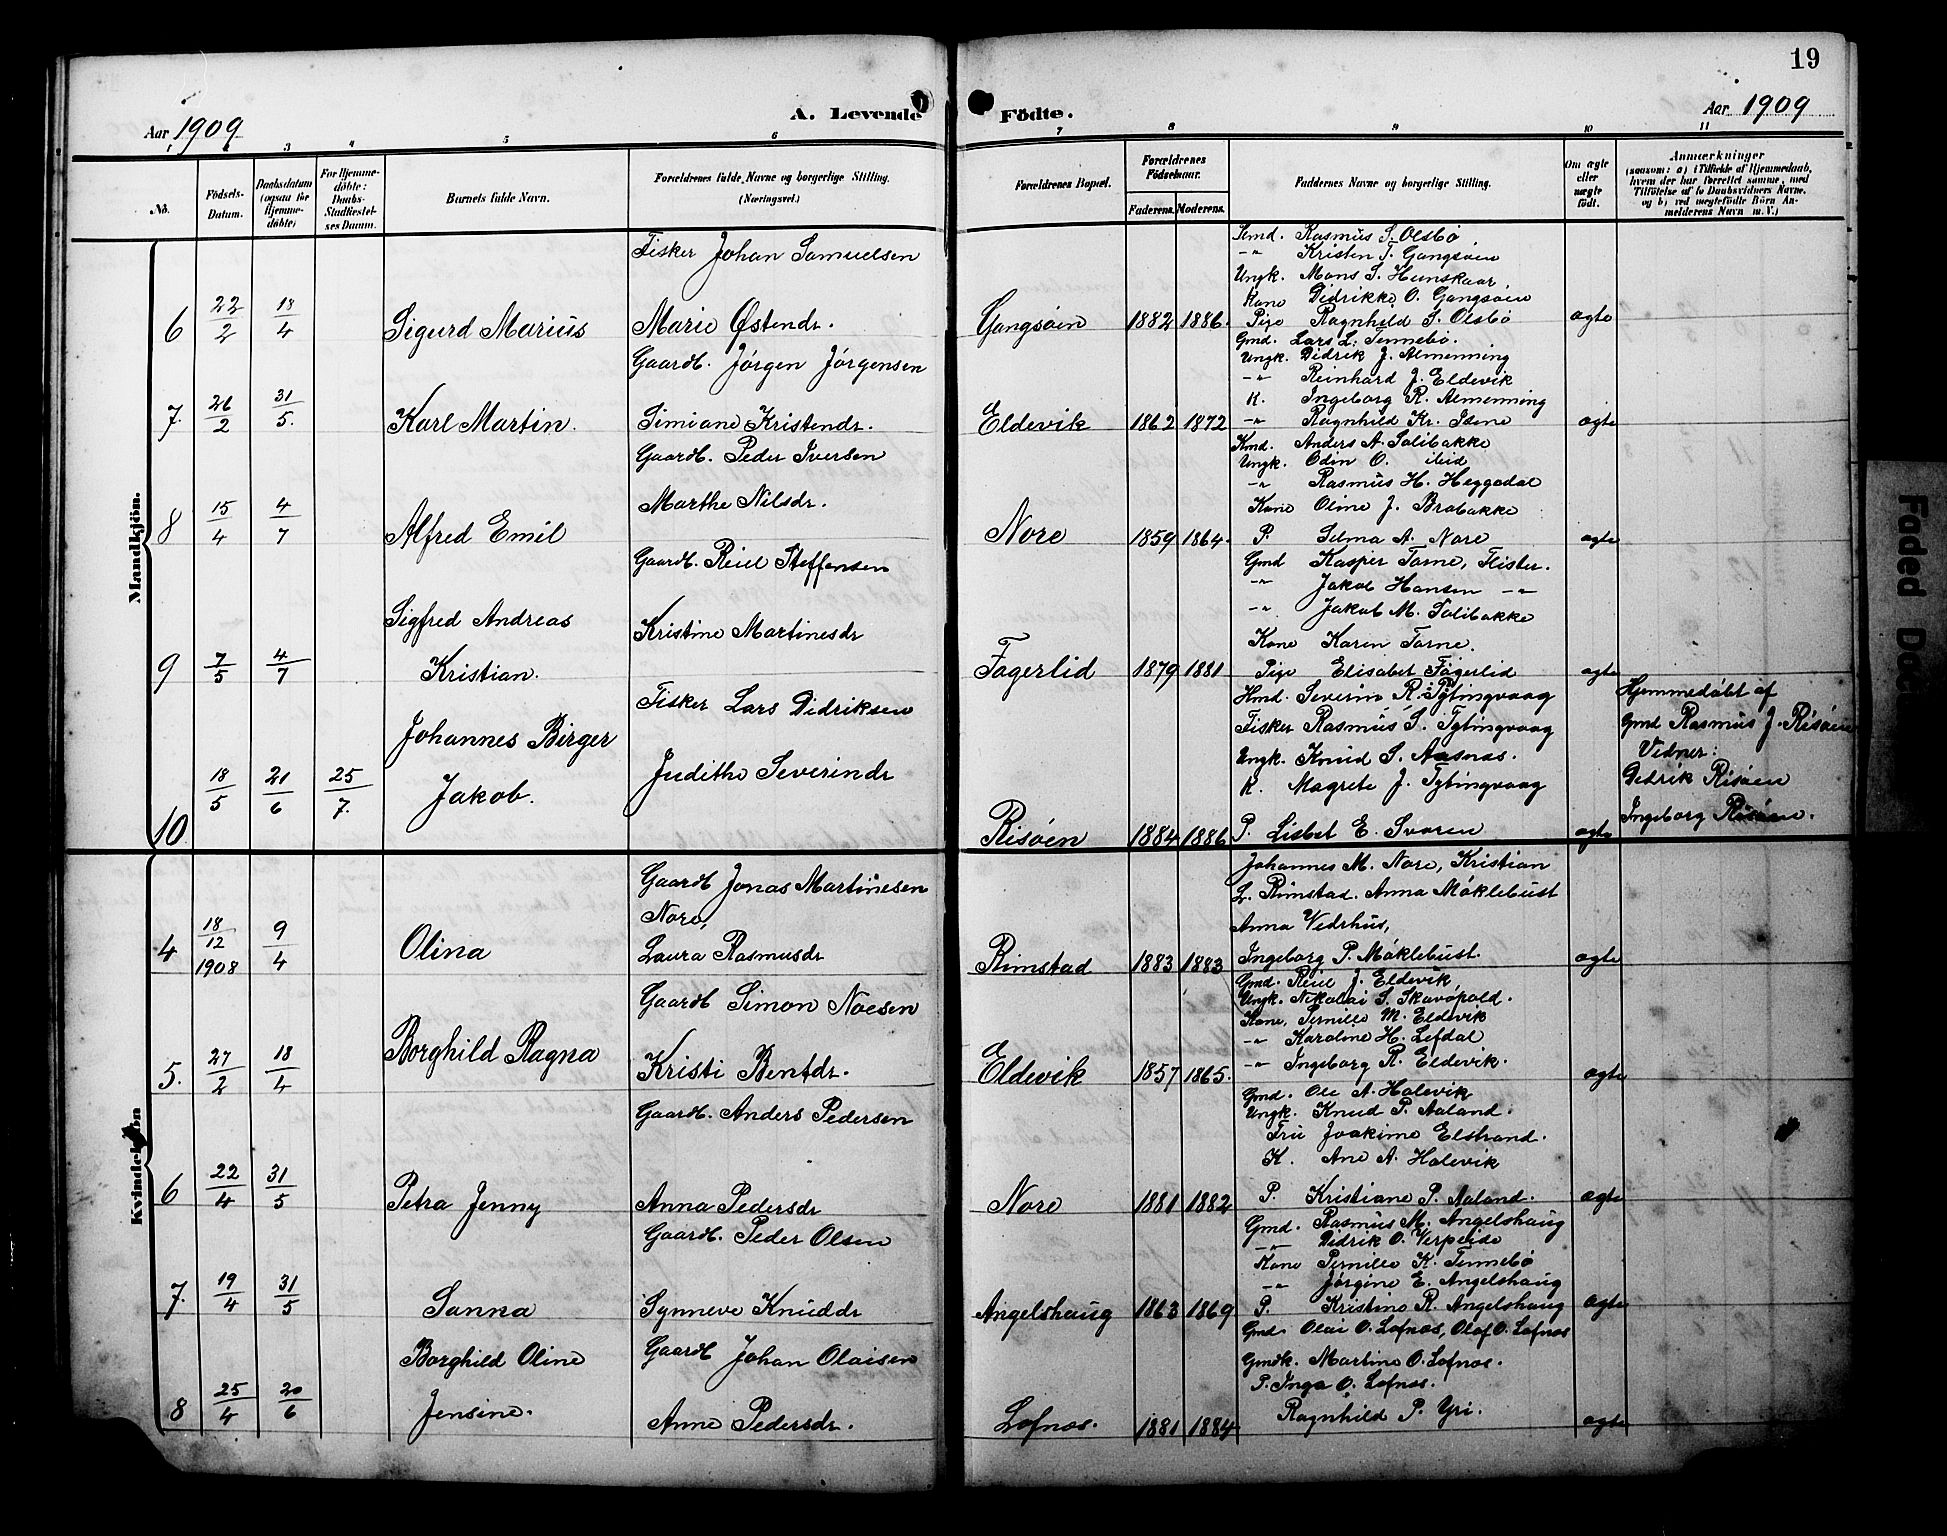 19
Aar 1909
A. Levende Födte.
Aar 1909
1 2 3 4 5 6 7 8 9 10 11
No.
Födsels-Datum.
Daabsdatum (ogsaa for Hjemme-döbte)
For Hjemme-döbte: Daabs-Stadfæstel-ses Datum.
Barnets fulde Navn.
Forældrenes fulde Navne og borgerlige Stilling. (Næringsvei.)
Forældrenes Bopæl.
Forældrenes Födselsaar.
Faderens. Moderens.
Faddernes Navne og borgerlige Stilling.
Om ægte eller uægte födt.
Anmærkninger
(saasom: a) i Tilfælde af Hjemmedaab,
hvem der har forrettet samme, med
Tilföielse af to Daabsvidners Navne.
og b) ved uægtefödte Börn An-
melderens Navn m. V.)
Mandkjön.
6 22/2 18/4 Sigurd Marius
Fisker Johan Samuelsen
Marie Østendr.
Gangsøen 1882 1886. ægte
Gmd. Rasmus S. Olsbø
-"- Kristen T. Gangsøen
Ungk. Mons S. Hunskaar
Kone Didrikke O. Gangsøen
Pige Ragnhild S. Olsbø
7. 26/2 31/5. Karl Martin.
Gaardb. Jørgen Jørgensen
Simiane Kristendr.
Eldevik 1862 1872 ægte
Gmd. Lars L. Tennebø.
Ungk. Didrik J. Almenning
-"- Reinhard J. Eldevik
K. Ingeborg R. Almenning
-"- Ragnhild Kr. Isene
8 15/4 4/7 Alfred Emil
Gaardb. Peder Iversen
Marthe Nilsdr.
Nore 1859 1864. ægte
Gmd. Anders A. Solibakke
Ungk. Odin O. ibid
-"- Rasmus H. Heggedal
Kone Oline J. Brobakke
P. Selma A. Nore
9 7/5 4/7 Sigfred Andreas
Kristian.
Gaardb. Reiel Steffensen
Kristine Martinesdr
Fagerlid 1879 1881 ægte
Gmd Kasper Torne, Flister.
-"- Jakob Hansen -"-
-"- Jakob M. Solibakke
Kone Karen Torne.
Pige Elisabet Fagerlid
10 18/5 21/6 25/7. Johannes Birger
Jakob.
Fisker Lars Didriksen
Judithe Severindr
Risøen 1884 1886 ægte
Hmd. Severin R. Tytingvaag
Fisker Rasmus S. Tytingvaag
Ungk. Knud S. Aasnæs.
K. Magrete J. Tytingvaag
P. Lisbet E. Svoren
Hjemmedøbt af
Gmd Rasmus J. Risøen
Vidner:
Didrik Risøen
Ingeborg Risøen.
Kvindekjön
4 18/12 1908 9/4 Olina
Gaardb Jonas Martinesen
Nore,
Laura Rasmusdr
Rimstad 1883 1883 ægte
Johannes M. Nore, Kristian
L. Rimstad. Anna Møklebust
Anna Vedrhus,
Ingeborg P. Møklebust.
5. 27/2 18/4 Borghild Ragna
Gaardb Simon Noesen
Kristi Bentdr.
Eldevik 1857 1865. ægte
Gmd. Reiel J. Eldevik
Ungk. Nikolai S. Skavøpold.
Kone, Pernille M. Eldevik
-"- Karoline H. Lefdal
-"- Ingeborg R. Eldevik.
6 22/4 31/5 Petra Jenny
Gaardb. Anders Pedersen
Anna Pedersdr
Nore 1881 1882 ægte
Gmd. Ole A. Halevik
Ungk. Knud P. Aaland.
Fru Joakime Elstrand.
K. Ane A. Halevik
P. Kristiane P. Aaland.
7. 19/4 31/5 Sanna
Gaardb. Peder Olsen
Synneve Knuddr
Angelshaug 1863 1869 ægte
Gmd. Rasmus M. Angelshaug
-"- Didrik O. Verpeide
Kone Pernille K. Tennebø
-"- Jørgine E. Angelshaug
P. Kristine R. Angelshaug
8 25/4 20/6 Borghild Oline
Jensine.
Gaardb Johan Olaisen
Anne Pedersdr.
Lofnæs. 1881 1884 ægte
Gmd. Olai O. Lofnæs, Olaf O. Lofnæs
Gmdk. Martine O. Lofnæs.
P. Inga O. Lofnæs.
Ragnhild P. Yri.
Faded